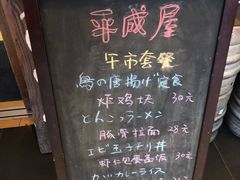 平成屋
午市套餐
鳥の唐揚げ定食
炸鸡块 30元
とんこつラーメン
豚骨拉面 28元
エビ玉子チリ丼
虾仁包蛋盖饭 30元
カツカレーライス